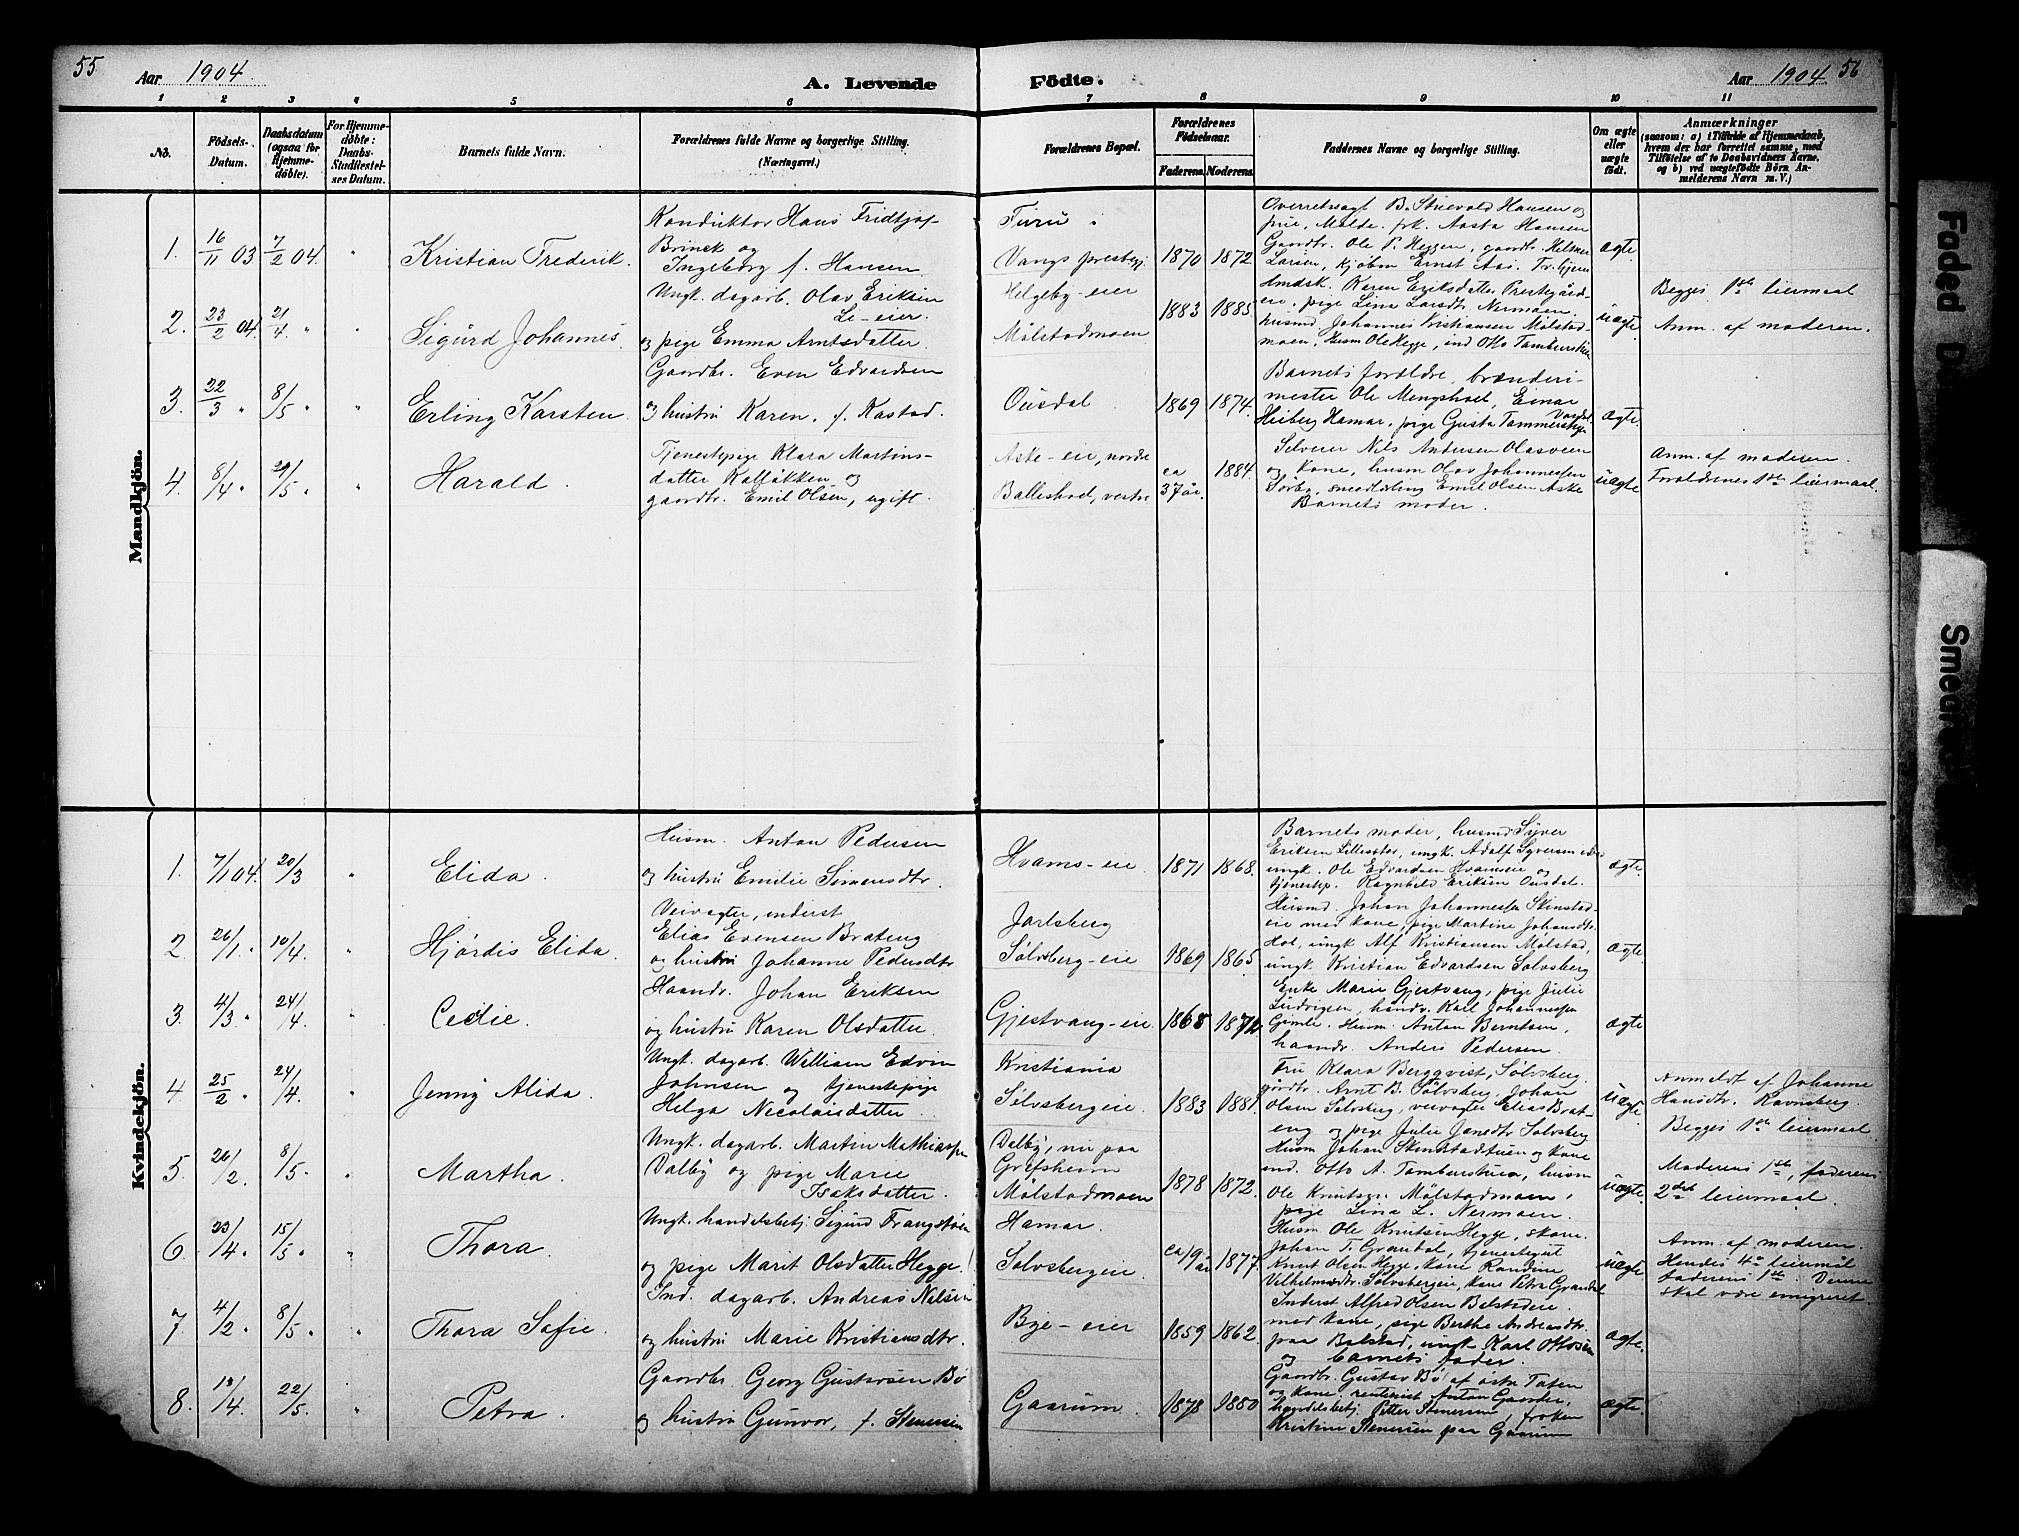 55
Aar 1904.
A. Levende
Födte.
Aar 1904. 56
1 2 3 4 5 6 7 8 9 10 11
No.
Födsels-
Datum.
Daabsdatum
(ogsaa for
Hjemme-
döbte).
For Hjemme-
döbte:
Daabs-
Stadfæstel-
ses Datum.
Barnets fulde Navn.
Forældrenes fulde Navne og borgerlige Stilling.
(Næringsvei.)
Forældrenes Bopæl.
Forældrenes
Födselsaar.
Faderens. Moderens.
Faddernes Navne og borgerlige Stilling.
Om ægte
eller
uægte
födt.
Anmærkninger
(saasom: a) i Tilfælde af Hjemmedaab,
hvem der har forrettet samme, med
Tilföielse af to Daabsvidners Navne.
og b) ved uægtefödte Börn An-
melderens Navn m. V.)
Mandkjön.
1. 16/11 03 7/2 04. " Kristian Frederik.
Konduktor Hans Fridtjof
Brinck og
Ingeborg f. Hansen.
Furu i
Vangs prestegj.
1870 1872
Overretssagf. B. Hansen og
frue, Molde, frk. Aasta Hansen
Gaardbr. Ole P. Heggen, gaardbr. Helmer
Larsen, kjøbm Ernst
ægte
2. 23/2 04. 21/4 " " Sigurd Johannes.
Ungk. dagarb. Olav Eriksen
Li-eier.
og pige Emma Arntsdatter.
Helgeby-eier
Mølstadmoen
1883 1885
Karen Eriksdatter Prestegård-
eie, pige Lina Larsdtr. Nermoen.
husmd Johannes Kristiansen Mølstad-
moen, husm Ole Hegge, ind Otto Tamburstuen
uægte
Begges 1ste leiermaal
Anm. af moderen.
3. 22/3 " 8/5 " " Erling Karsten.
Gaardbr. Even Edvardsen
og hustru Karen, f. Kastad.
Ousdal.
1869 1874.
Barnets forældre, brænderi-
mester Ole Mengshoel, Einar
Hisberg Hamar, pige Gusta Tammerstuen
ægte.
4. 8/4 " 29/5 " " Harald.
Tjenestepige Klara Martins-
datter Kalløkken og
gaardbr. Emil Olsen, ugift.
Aske-eier, nordre
Balleshoel, vestre
ca
37 år. 1884.
Selveier Nils Andersen Olasveen
og Kone, husm Olav Johannessen
Sørby, smedlærling Emil Olsen Aske
Barnets moder.
uægte
Anm. af moderen.
Forældrenes 1ste leiermaal.
Kvindekjön.
1. 7/1 04. 20/3 " Elida.
Husm. Anton Pedersen
og hustru Emilie Simensdtr.
Hvams-eie
1871 1868.
Barnets moder, husmd Syver
Eriksen Lillestor, ungk. Adolf Syversen
ungk. Ole Edvardsen Hvamseie og
tjenestep. Ragnhild Eriksen Ousdal.
ægte
2. 26/1 " 10/4 " Hjørdis Elida.
Veivogter, inderst
Elias Evensen Brateng
og hustru Johanne Pedersdtr
Jarlsberg
Sølvsberg-eie
1869 1865.
Husmd. Johan Johannessen Skinstad-
eie med kone, pige Martine Johansdtr.
Hol, ungk Alf Kristiansen Mølstad,
ungk. Kristian Edvardsen Sølvsberg
ægte.
3. 4/3 " 24/4 " Cecilie.
Haandv. Johan Eriksen
og hustru Karen Olsdatter.
Gjestvang-eie.
1868 1872
Enke Marie Gjestvang, pige Julie
Ludvigsen, handv. Karl Johannessen
Gimle. Husm. Anton Berntsen,
haandv. Anders Pedersen.
ægte
4. 25/2 " 24/4 " Jenny Alida.
Ungk. dagarb. William Edvin
Johnsen og tjenestepige
Helga Nicolaisdatter
Kristiania
Sølvsbergeie.
1883 1881.
Fru Klara Bergqvist, Sølvsberg.
gårdbr. Arnt B. Sølvsberg, Johan
Olsen Sølvsberg, veivogter Elias Brat-
eng og pige Julie Jansdtr Sølvsberg
uægte
Anmeldt af Johanne
Hansdtr. Ravnsberg.
Begges 1ste leiermaal.
5. 26/2. 8/5. " Martha.
Ungk. dagarb. Martin Mathiassen
Dalby og pige Marie
Isaksdatter.
Dalby, nu paa
Grefsheim
Mølstadmoen
1878 1872.
Husm Johan Skinstadstuen og kone
ind. Otto A. Tamburstuen, husm
Ole Knutsen Mølstadmoen,
pige Lina L. Nermoen.
uægte.
Moderens 1ste, faderens
2det leiermaal.
6. 23/4 " 15/5 " " Thora.
Ungk. handelsbetj. Sigurd Frangstøen
og pige Marit Olsdatter Hegge.
Hamar.
Sølvsbergeie.
ca 19 år 1877.
Husm Ole Knutsen Hegge, s kone.
Johan T. Grøndal, tjenestegut
Knut Olsen Hegge, kone Randine
Vilhelmsdtr. Sølvsbergeie, kone Petra Grøndal
uægte
Anm. af moderen.
Hendes 4de leiermål
faderens 1ste. Denne
skal være emigreret.
7. 4/2 " 8/5 " " Thora Sofie.
Ind. dagarb. Andreas Nilsen
og hustru Marie Kristiansdtr.
Bye-eier
1859 1862.
Inderst Alfred Olsen Belstadeie
med kone, pige Berthe Andreasdtr.
paa Belstad, ungk Karl Ottosen
og barnets fader.
ægte.
8. 13/4. 22/5. " Petra.
Gaardbr Georg Gustavsen Bø
og hustru Gunvor, f. Stenersen
Gaarum.
1878 1880
Gaardbr. Gustav Bø af østre Toten
og kone, rentenist Anton Gaarder,
handelsbetj. Petter Stenersen, frøken
Kristine Stenersen paa Gaarum
ægte.
Faded D
Smea